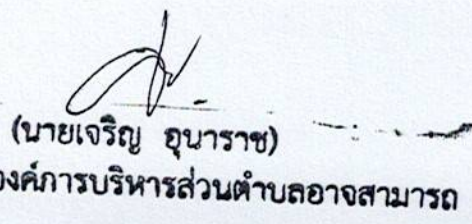 (นายเจริญ อุนาราช)
องค์การบริหารส่วนตำบลอาจสามารถ